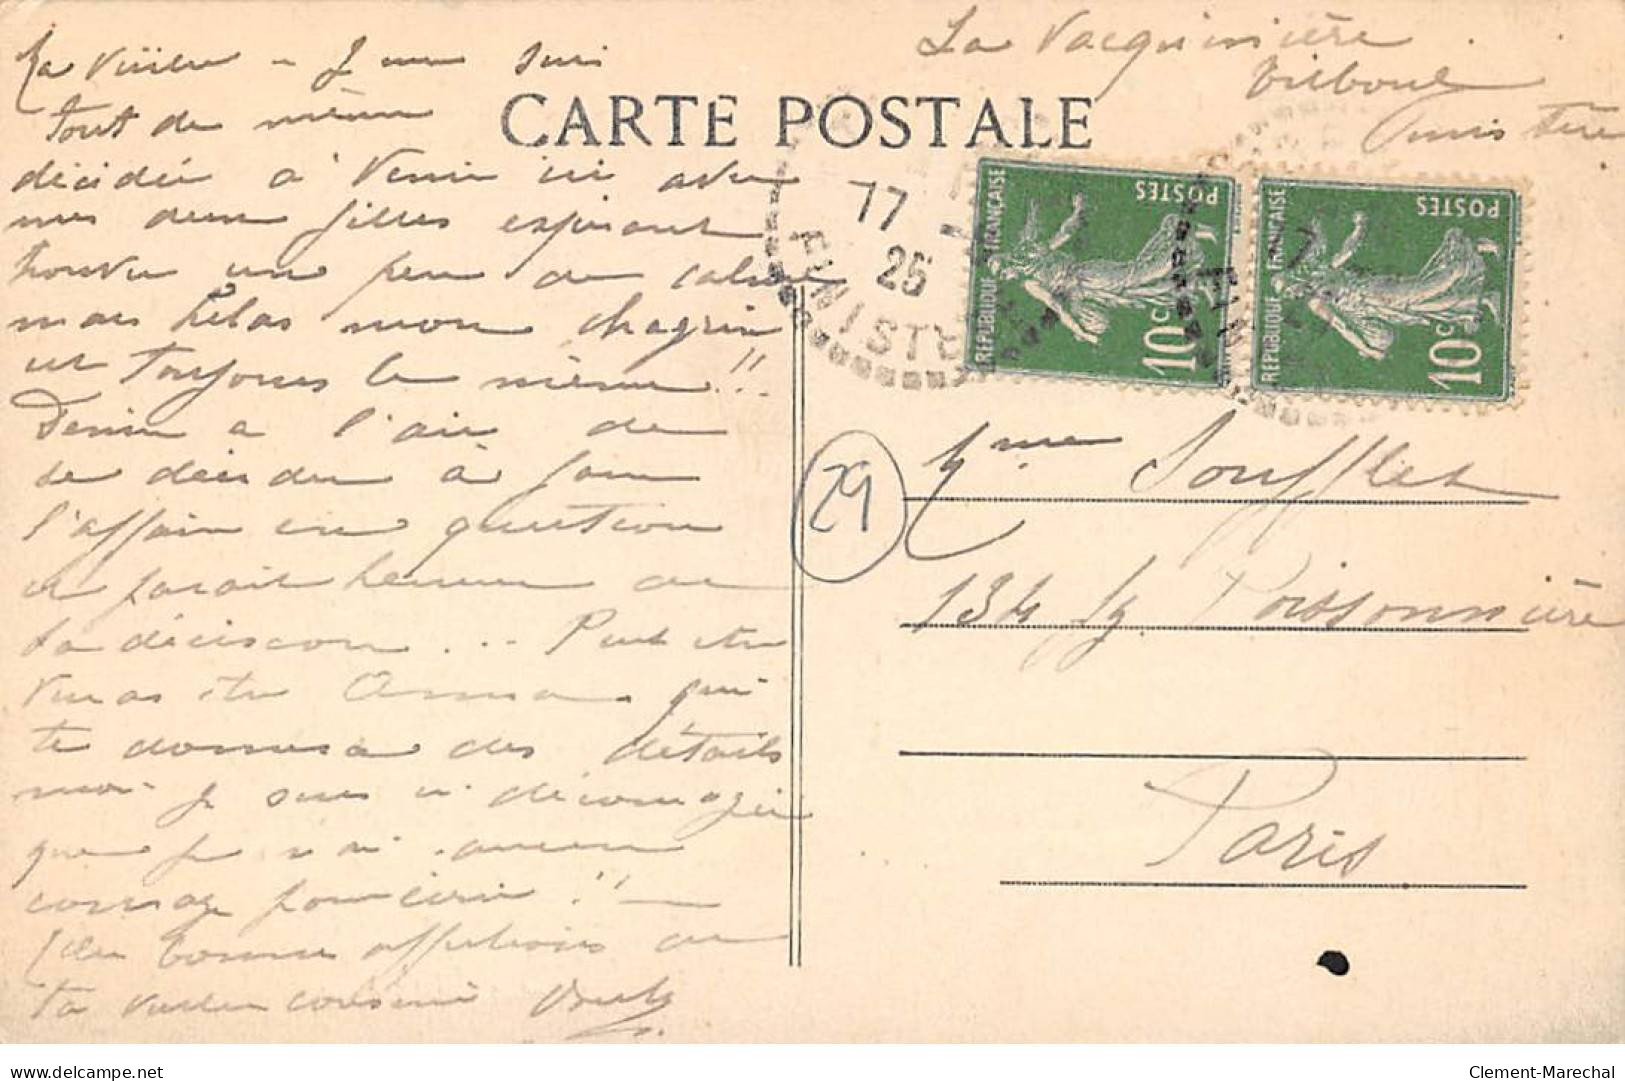 La Vacquinière
Ma vieille - Je me suis
Finistère
tout de même
CARTE POSTALE
décidée à venir ici avec
mes deux filles espérant
trouver un peu de calme
mais hélas mon chagrin
est toujours le même !!
Denise a l'air de
se décider à faire
l'affaire en question
et paraît heureuse de
sa décision... Peut être
verras tu Anna qui
te donnera des détails
moi je suis si découragée
que je n'ai aucun
courage pour écrire !! —
bonnes affections de
ta vieille cousine
17
25
FINISTERE
REPUBLIQUE FRANÇAISE
POSTES
10c
REPUBLIQUE FRANÇAISE
POSTES
10c
29
Mme Soufflet
134 fg. Poissonnière
Paris
www.delcampe.net
Clement-Marechal